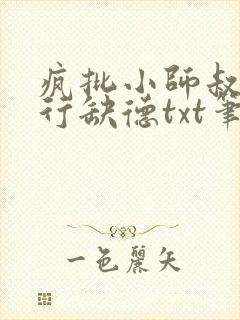 疯批小师叔
行缺德txt笔
一色丽矢